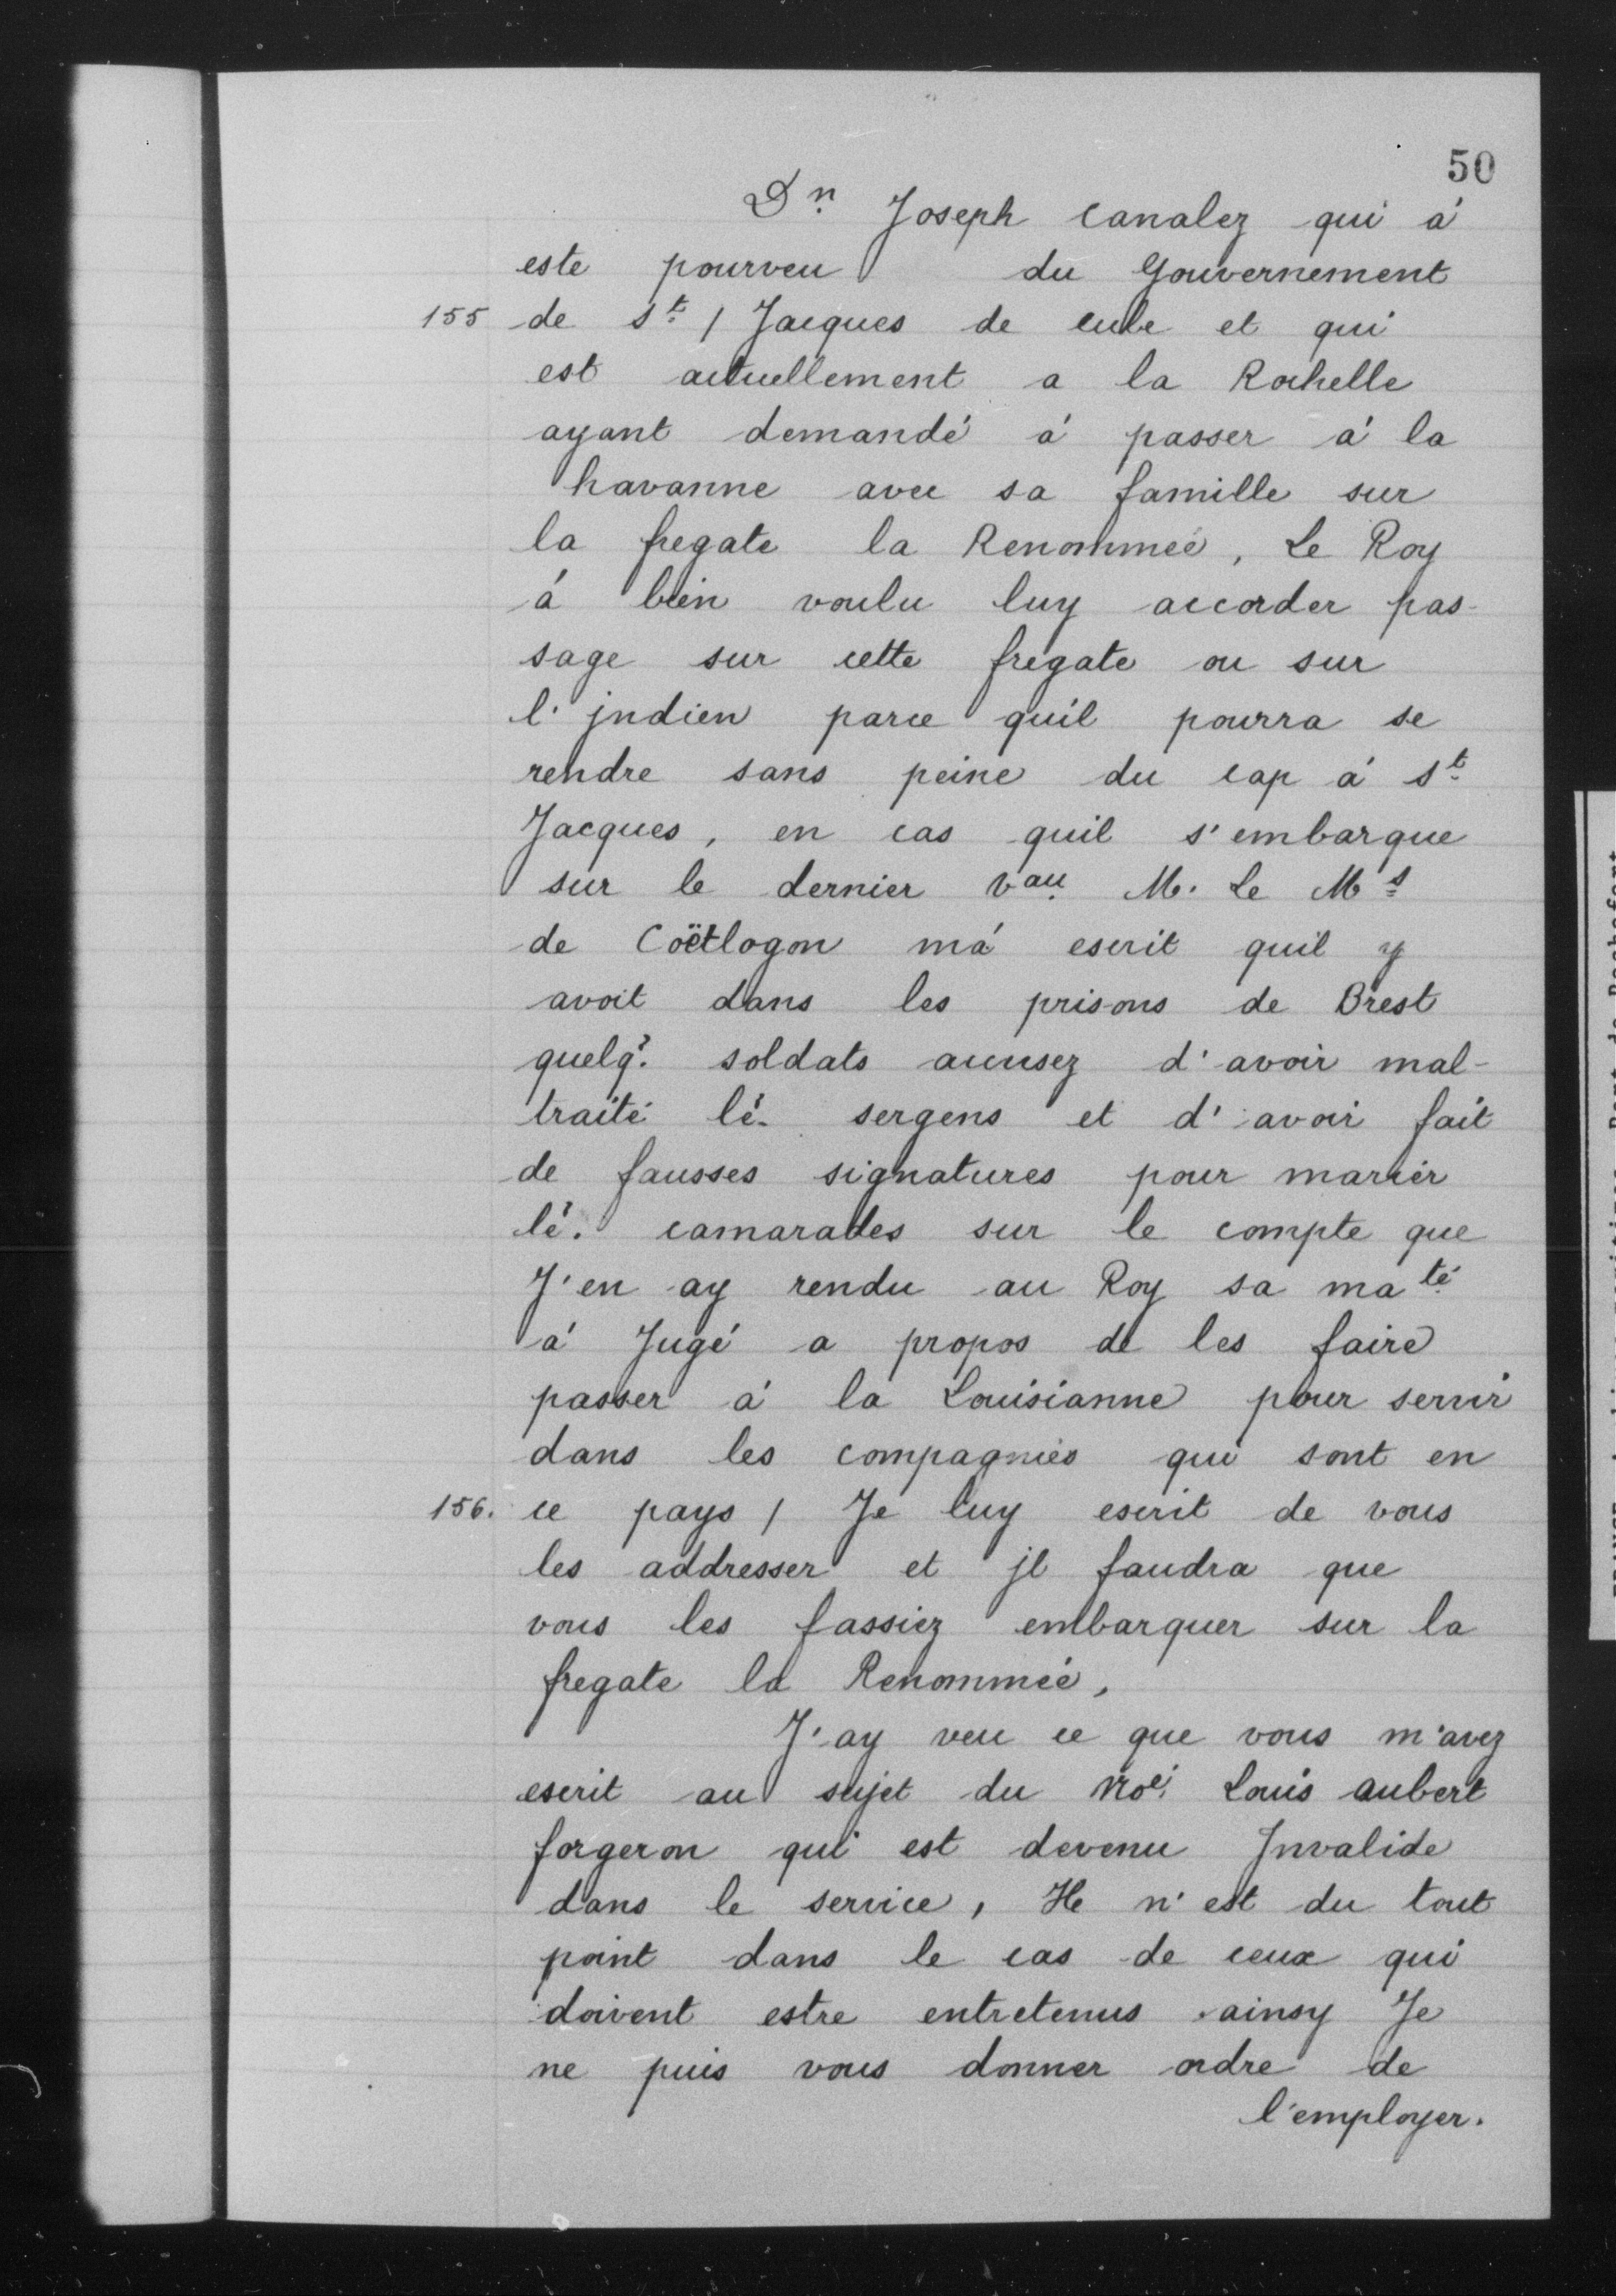 50
Dn. Joseph Canalez qui á
este pourveu du Gouvernement
155 de st. / Jacques de cube et qui
est actuellement a la Rochelle
ayant demandé á passer á la
havanne avec sa famille sur
la fregate la Renommée, Le Roy
á bien voulu luy accorder pas-
sage sur cette fregate ou sur
l'jndien parce quil pourra se
rendre sans peine du cap á st.
Jacques, en cas quil s'embarque
sur le dernier vau. M. Le Ms
de Coëtlogon má escrit quil y
avoit dans les prisons de Brest
quelq?. soldats accusez d'avoir mal-
traité lé. sergens et d'avoir fait
de fausses signatures pour marier
lé. camarades sur le compte que
J'en ay rendu au Roy sa maté.
á Jugé a propos de les faire
passer á la Louisianne pour servir
dans les compagnies qui sont en
156. ce pays / Je luy escrit de vous
les addresser et jl faudra que
vous les fassiez embarquer sur la
fregate la Renommée,
J'ay veu ce que vous m'avez
escrit au sujet du Noé. Louis aubert
forgeron qui est devenu Jnvalide
dans le service, Il n'est du tout
point dans le cas de ceux qui
doivent estre entretenus ainsy Je
ne puis vous donner ordre de
l'employer.